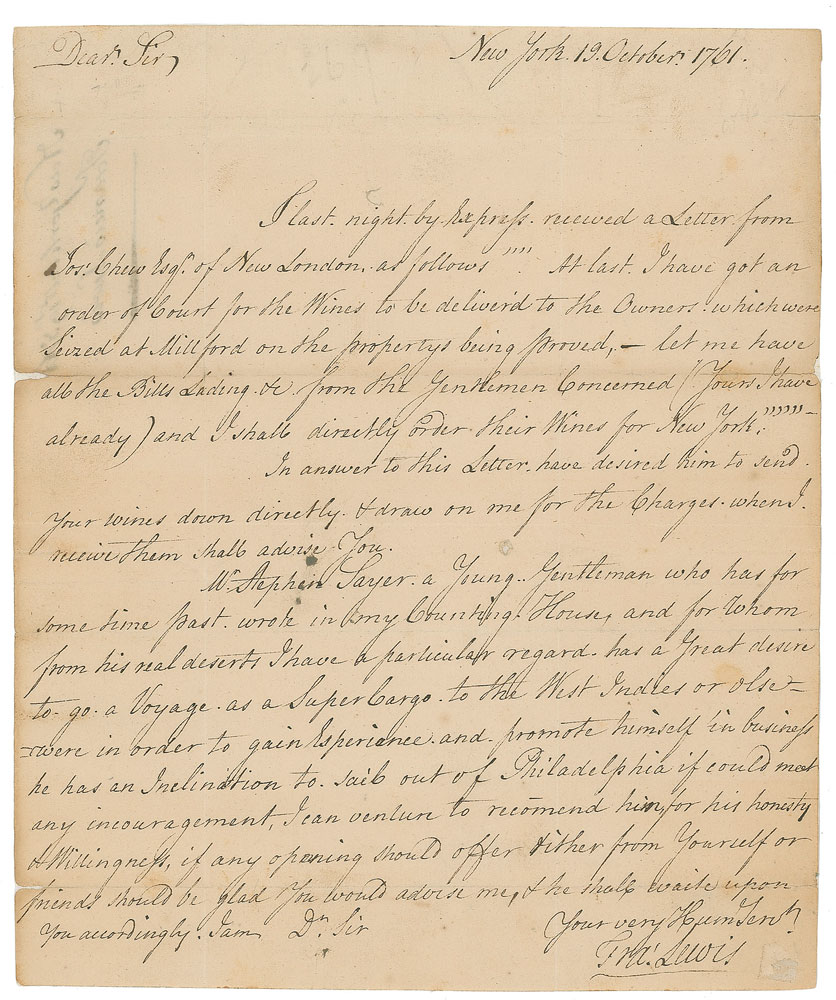 Dear.^r Sir, New York. 19. October. 1761.
I last. night. by. Express. received a Letter from
Jos.^s Chew Esq.^r of New London, as follows """. At last. I have got an
order of Court for the Wines to be deliver'd to the Owners. which were
Seized at Millford on the propertys being proved, — let me have
all the Bills Lading. &c. from the Gentlemen Concerned (Yours I have
already) and I shall directly order their Wines for New York." """"-
In answer to this Letter. have desired him to send.
Your wines down directly. & draw on me for the Charges. when I.
receive them shall advise You.
M^r. Stephen Sayer. a Young. Gentleman who has for
some time past. wrote in my Counting. House, and for Whom
from his real deserts I have a particular regard. has a Great desire
to. go. a Voyage. as a Super Cargo. to the West Indies or else=
=were in order to gain Experience. and. promote himself in business
he has an Inclination to. sail out of Philadelphia if could meet
any incouragement, I can venture to recōmend him, for his honesty
& Willingness, if any opening should offer either from Yourself or
friends should be glad You would advise me, & he shall waite upon
You accordingly. I am, D^r Sir Your very Hum Serv^t.
Fra.^s Lewis